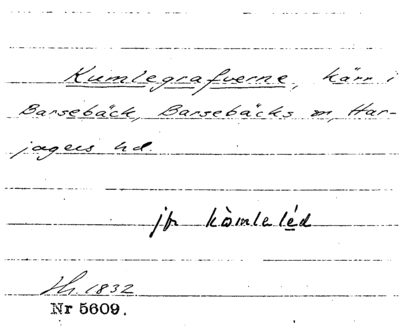 Kumlegrafverne, kärr i
Barsebäck, Barsebäcks sn, Har-
jagers hd.
jfr kòmleléd
Hr. 1832
Nr 5609.